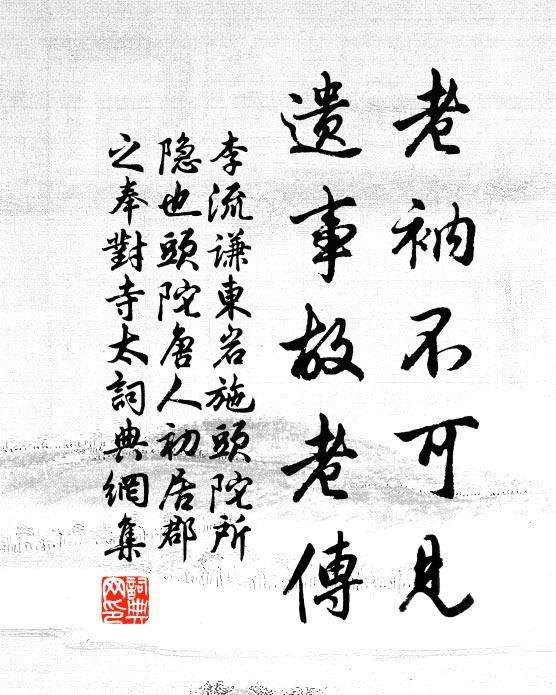 老衲不可見
遺事故老傳
李流謙東岩施頭陀所
隐也頭陀唐人初居郡
之奉對寺太詞典網集
詞典网印